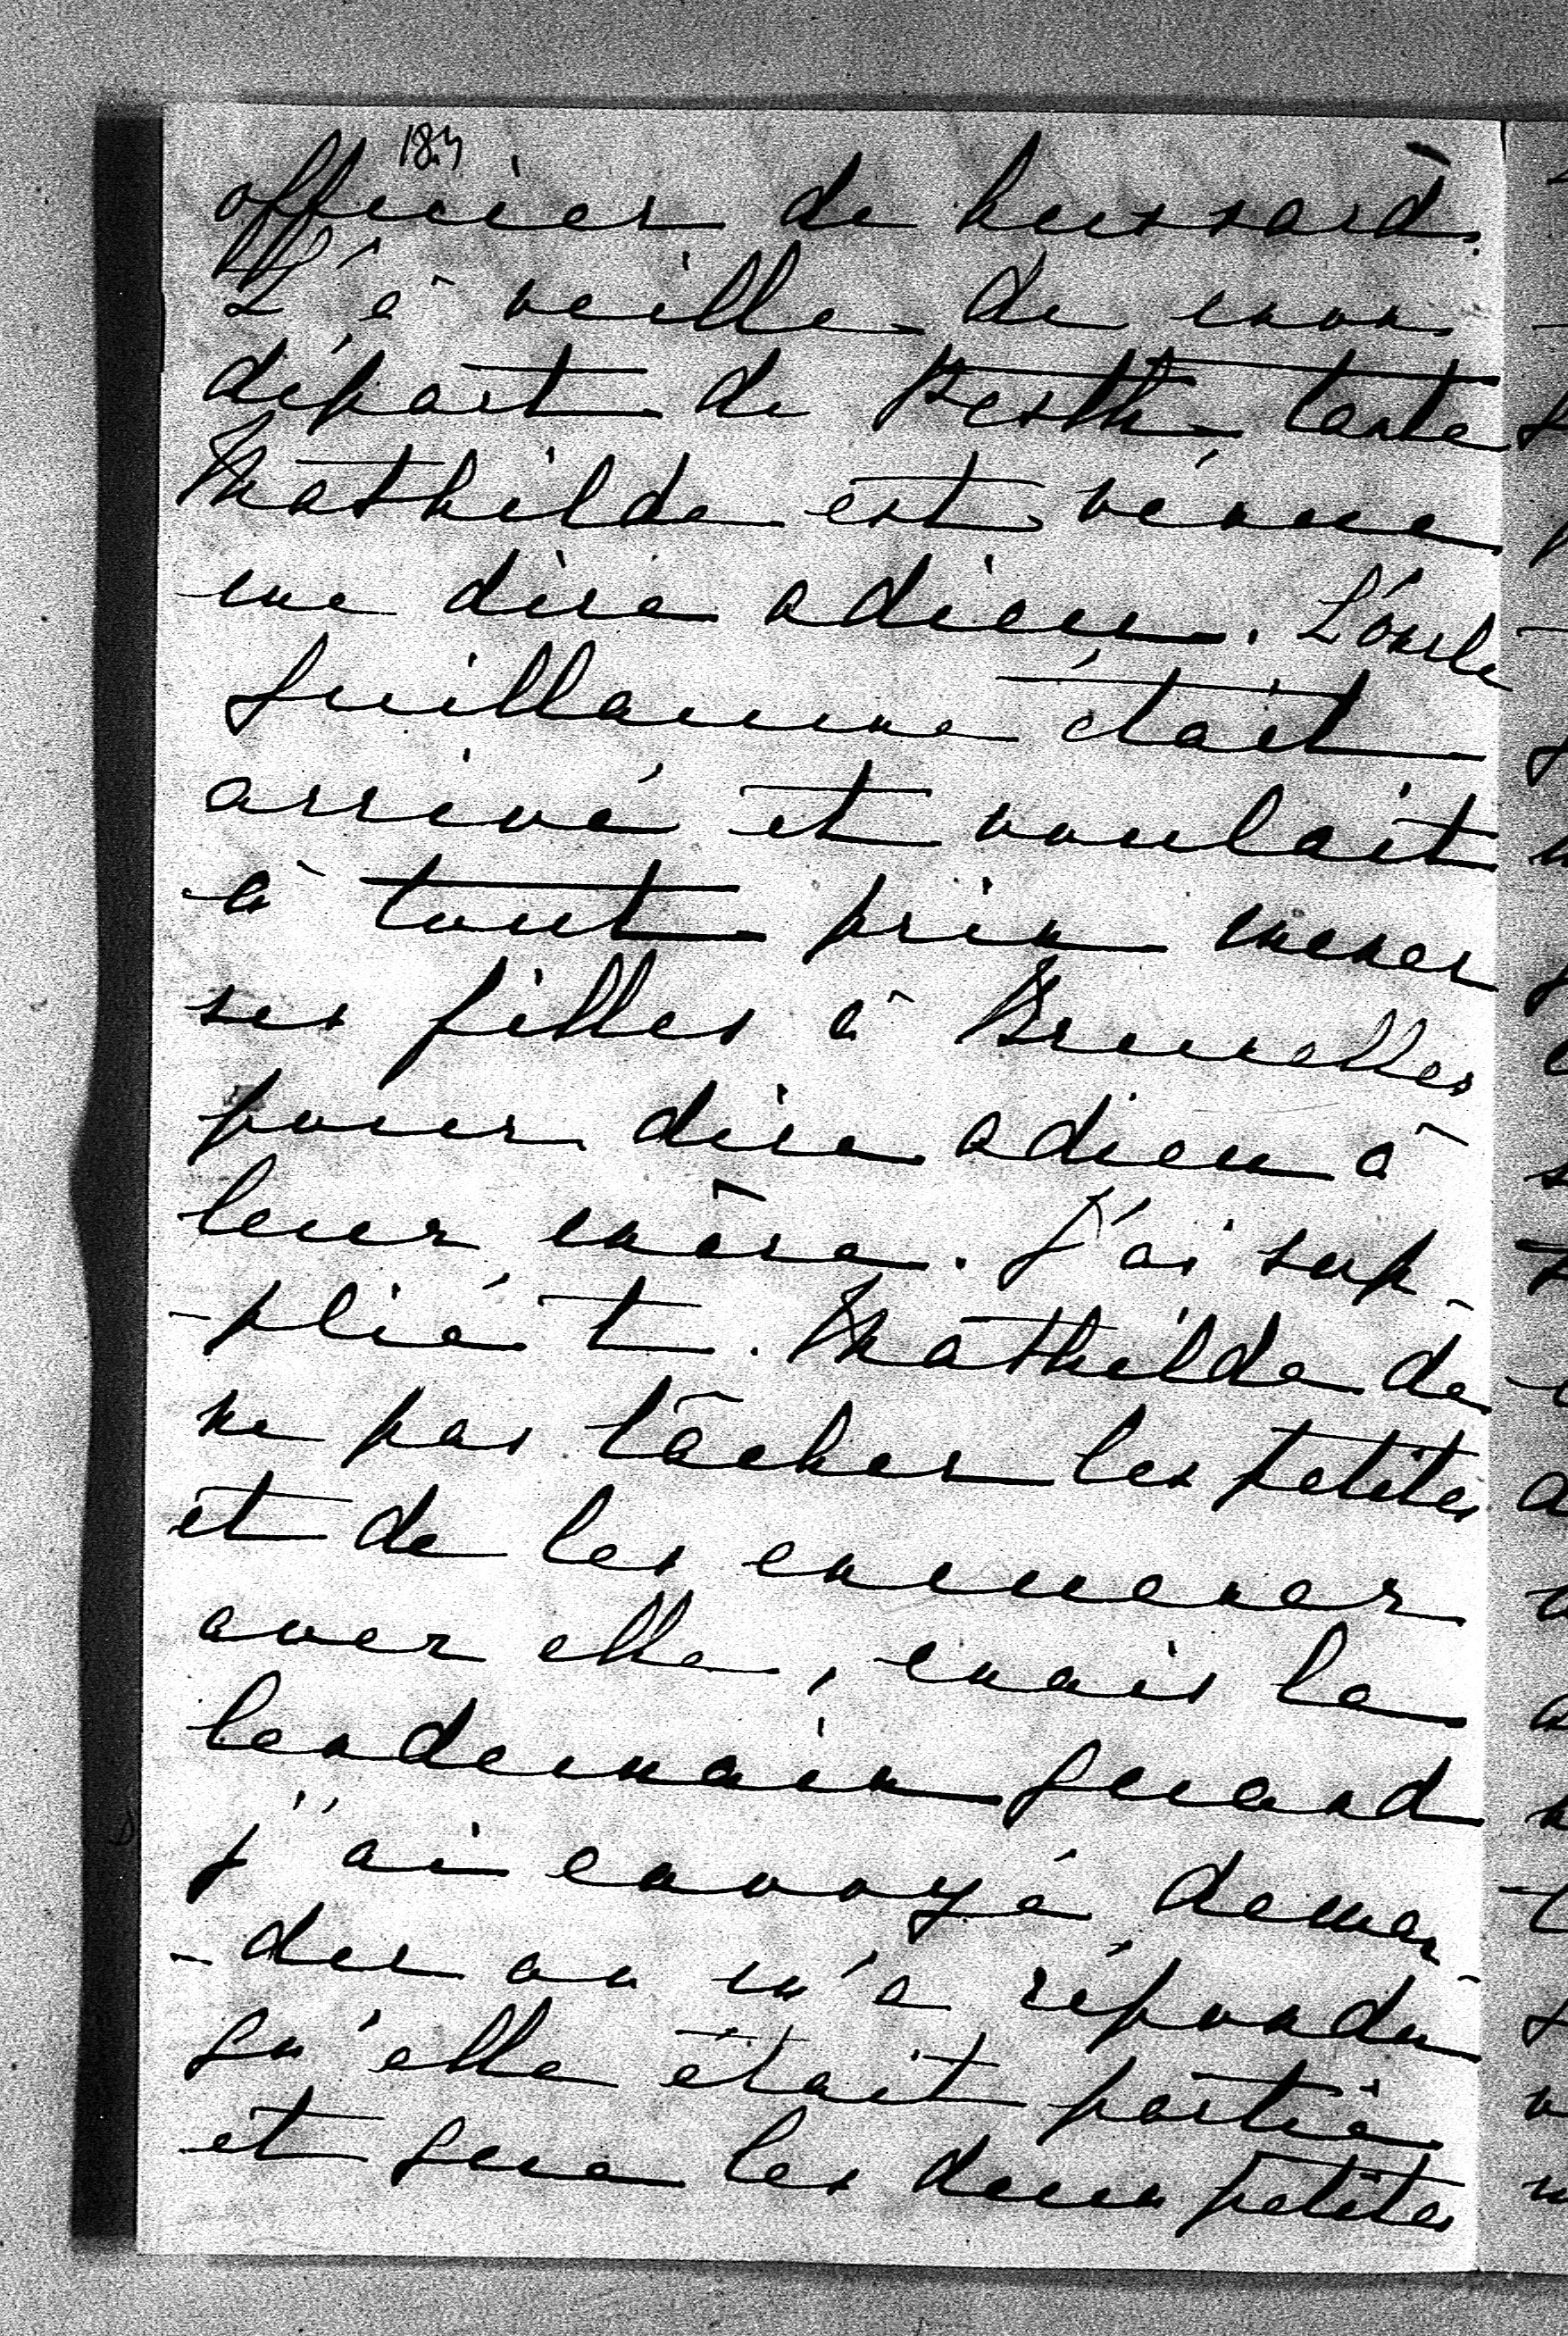 184
officier de hussard.
L'à veille de mon
départ de Pesth tante
Mathilde est vénue
me dire adieu. L'oncle
Guillaume était
arrivé et voulait
à tout prix mener
ses filles à Bruxelles
pour dire adieu à
leur mère. J'ai sup-
-plié t. Mathilde de
ne pas lâcher les petites
et de les emmener
avec elle, mais le
lendemain quand
j'ai envoyé deman-
-der on m'a répondu
qu'elle était partie
et que les deux petites